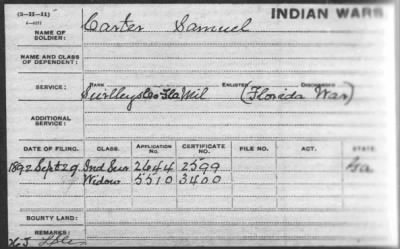 (3—II—11) INDIAN WARS
NAME OF SOLDIER: Carter Samuel
NAME AND CLASS OF DEPENDENT:
RANK ENLISTED DISCHARGED
SERVICE: Co Fla Mil (Florida War)
ADDITIONAL SERVICE:
DATE OF FILING. CLASS. APPLICATION NO. CERTIFICATE NO. FILE NO. ACT. STATE
1892 Sept 29 Ind Sur 2644 2599 Ga
Widow 5510 3400
BOUNTY LAND:
REMARKS: